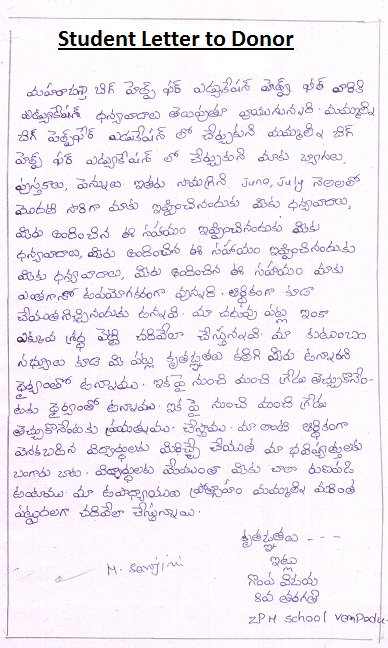 Student Letter to Donor
మహారాజశ్రీ బిగ్ హెల్ప్ ఫర్ ఎడ్యుకేషన్ హెల్ప్ ఫర్ వారికి
ఎడ్యుకేషన్ ధన్యవాదాలు తెలుపుతూ వ్రాయుగునది. మమ్మల్ని
బిగ్ హెల్ప్ ఫర్ ఎడుకేషన్ లో చేర్చుకుని మమ్మల్ని బిగ్
హెల్ప్ ఫర్ ఎడ్యుకేషన్ లో చేర్చుకుని మాకు బ్యాగులు,
పుస్తకాలు, పెన్నులు ఇతర సామాగ్రిని June, July నెలలలో
మొదటి సారిగా మాకు ఇప్పించినందుకు మీకు ధన్యవాదాలు,
మీరు అందించిన ఈ సహాయం ఇప్పించినందుకు మీకు
ధన్యవాదాలు, మీరు అందించిన ఈ సహాయం ఇప్పించినందుకు
మీకు ధన్యవాదాలు, మీరు అందించిన ఈ సహాయం మాకు
ఎంతగానో ఉపయోగకరంగా వున్నది. ఆర్థికంగా కూడా
చేయూతనిచ్చినందుకు ఉన్నది. మా చదువు పట్ల ఇంకా
ఎక్కువ శ్రద్ధ పెట్టి చదివేలా చేస్తున్నది. మా కుటుంబ
సభ్యులు కూడా మీ పట్ల కృతజ్ఞతలు కలిగి మీరు ఉన్నారని
ధైర్యంతో ఉన్నాము. ఇక పై నుంచి మంచి గ్రేడు తెచ్చుకొనేం-
టకు ధైర్యంతో ఉన్నాము ఇక పై నుంచి మంచి గ్రేడు
తెచ్చుకొనేందుకు ప్రయత్నం చేస్తాము. మా లాంటి ఆర్థికంగా
వెనకబడిన విద్యార్థులకు మీరిచ్చే చేయుత మా భవిష్యత్తులకు
బంగారు బాట. విద్యార్థులకు మేమంతా మీకు చాలా రుణపడి
ఉంటాము. మా ఉపాధ్యాయులు ప్రోత్సాహం మమ్మల్ని మరింత
పట్టుదలగా చదివేలా చేస్తున్నాయి.
కృతజ్ఞతలు - - -
ఇట్లు
విజయ
8వ తరగతి
ZPH school vempadu.